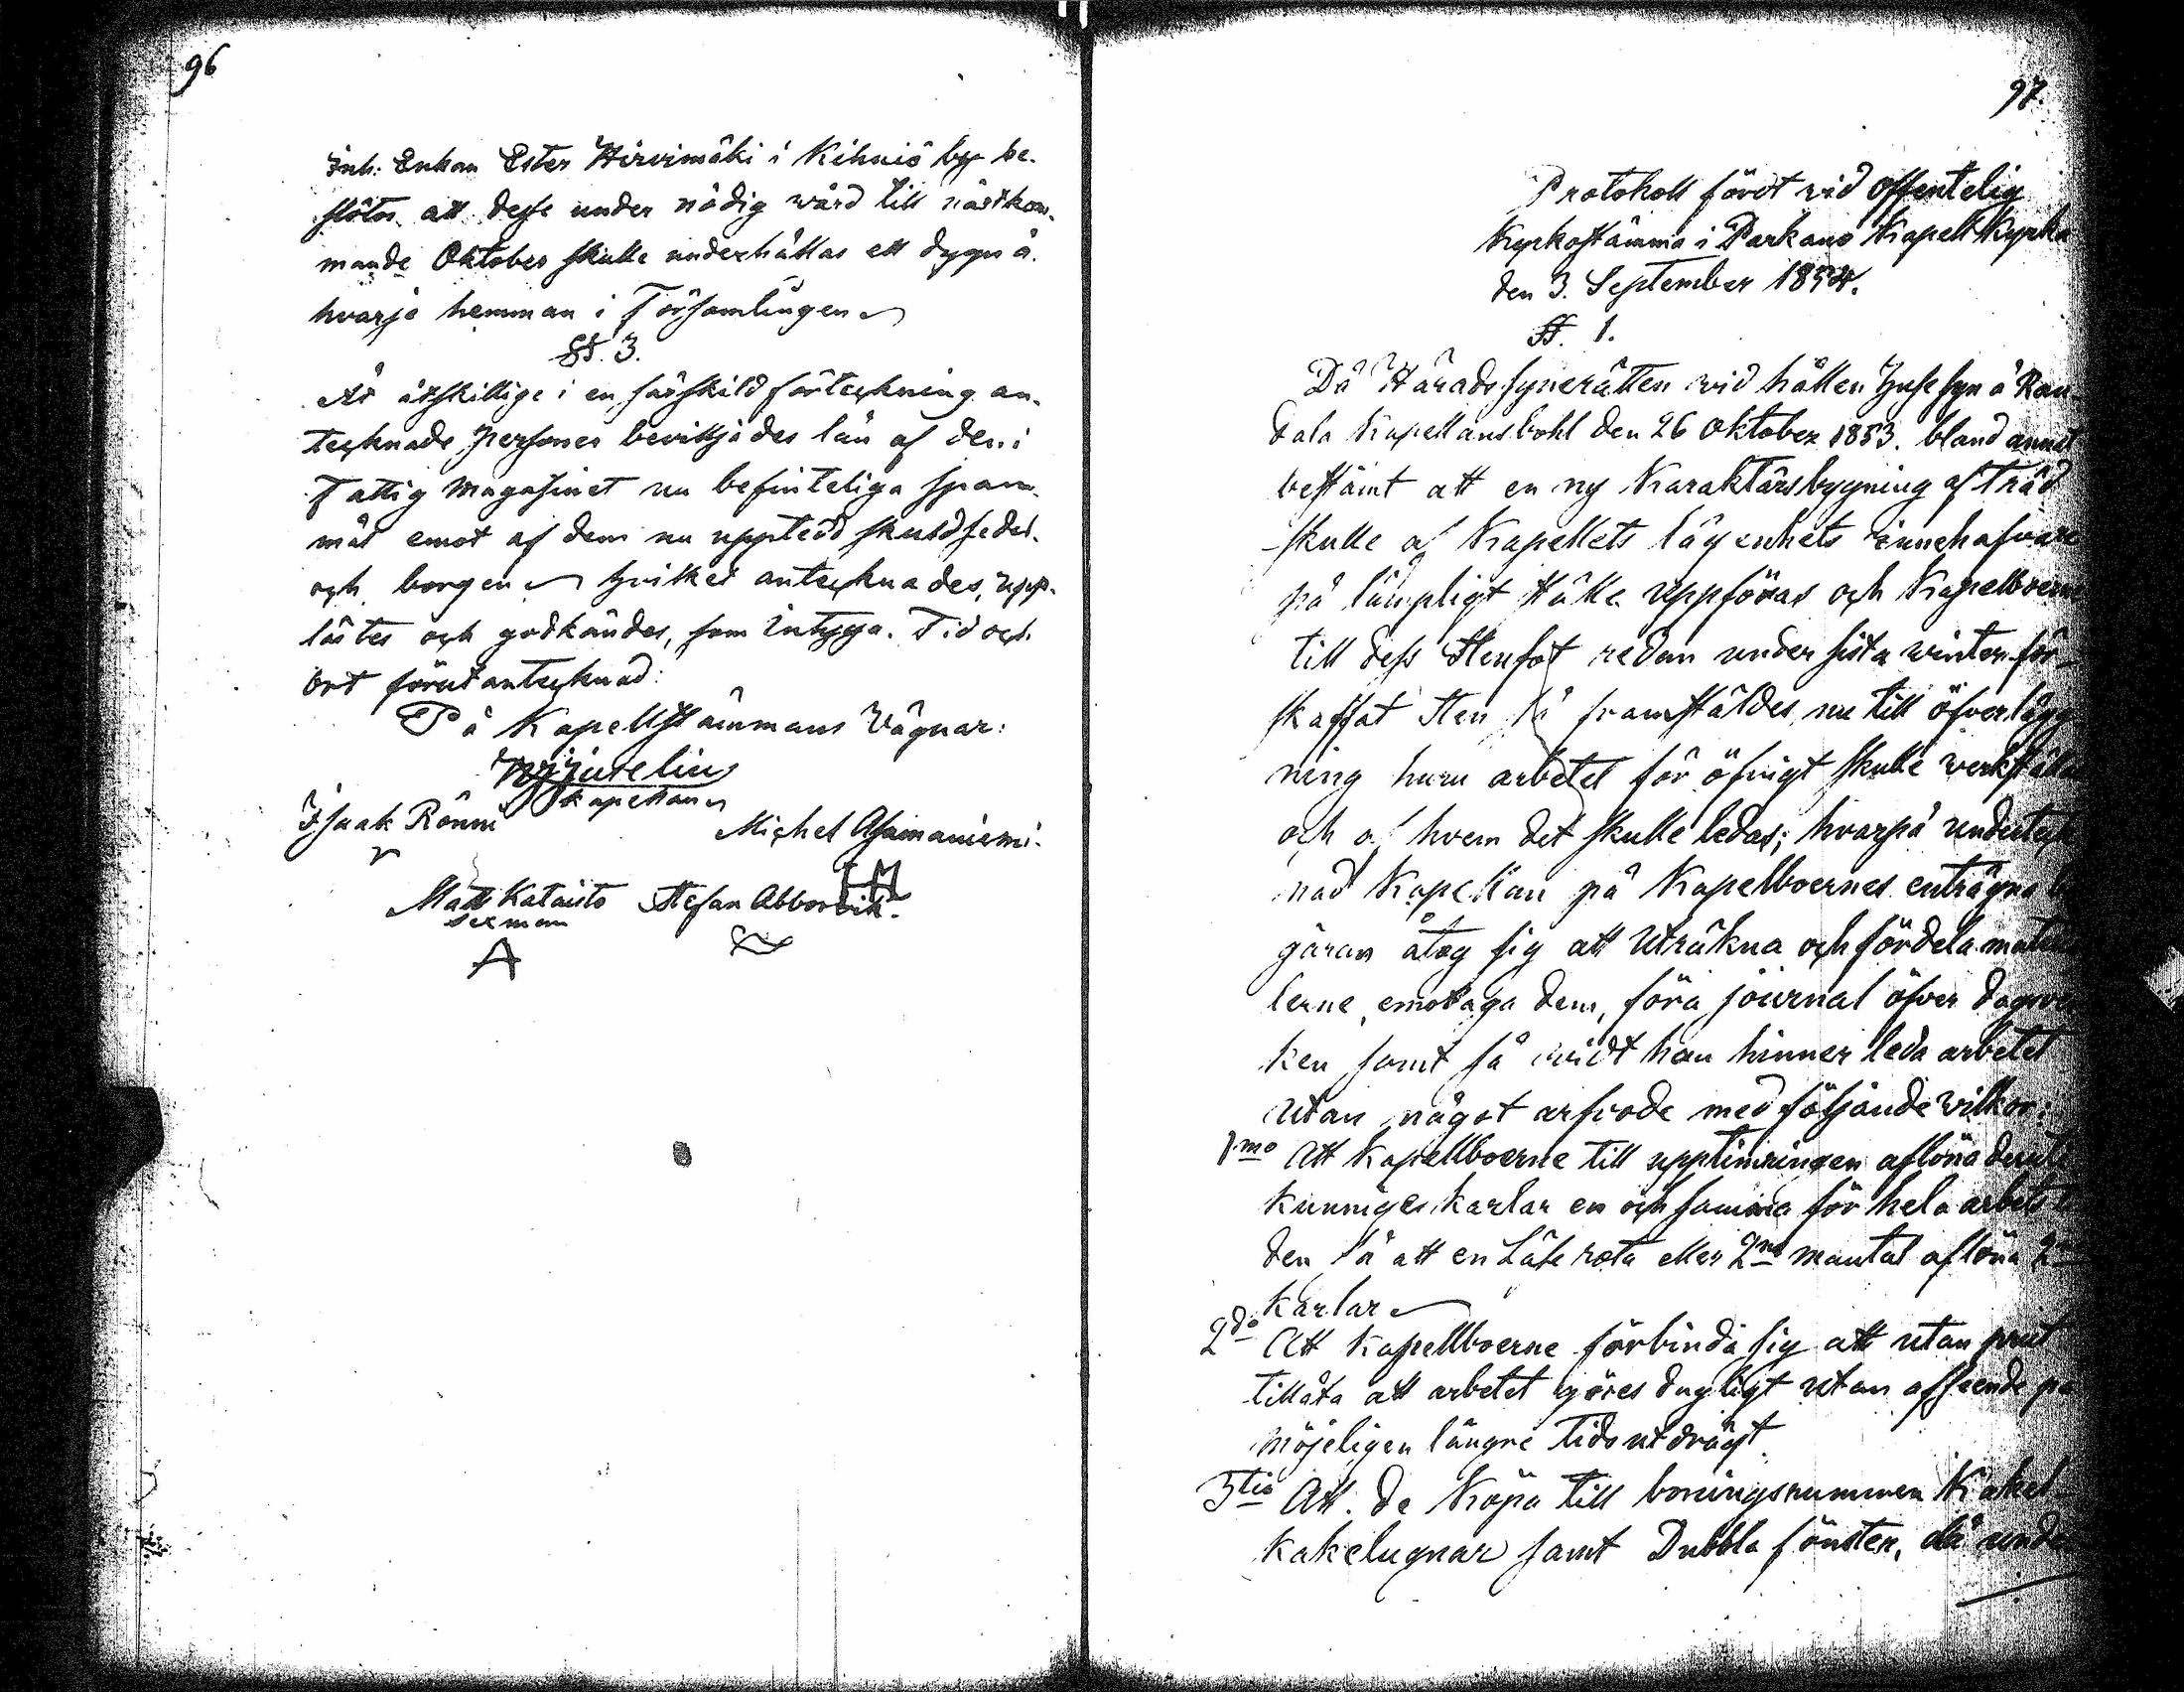 96
Inh: Enkan Ester Hirvimäki i Kihniö by be-
slöts att desse under nödig wård till nästkom-
mande Oktober skulle underhållas ett dygn å
hvarje hemman i Församlingen
§. 3.
Åt åtskillige i en särskild förteckning an-
tecknade personer beviljades lån af den i
Fattig Magasinet nu befinteliga spann-
mål emot af dem nu uppteдd skuldsedel
och borgen hvilket antecknades, upp-
lästes och godkändes, som intyga. Tid och
Ort förut antecknad:
På Kapellstämmans Vägnar:
kapellan
Isaak Rönni
Michel Asamaniemi.
Matts Kataisto Stefan Abborvik.
sexman
97.
Protokoll fördt vid offentelig
Kyrkostämma i Parkano Kapell Kyrka
den 3. September 1854.
§. 1.
Då Härads synerätten vid hållen Huse syn å Ran-
dala Kapellansbohl den 26 Oktober 1853. bland annat
bestämt att en ny Karaktärsbygning af Träd
skulle af Kapellets lägenhets innehafvare
på lämpligt ställe uppföras och Kapellboerne
till dess Stenfot redan under sista winter för-
skaffat Sten så framstäldes nu till öfverlägg
ning huru arbetet för öfrigt skulle verkställas
och af hvem det skulle ledas; hvarpå underteck
nad Kapellan på Kapellboernes enträgna be
gäran åtog sig att Uträkna och fördela materia
lerne, emottaga dem, föra journal öfver dagsver
ken samt så vidt han hinner leda arbetet
utan något arfvode med följande vilkor:
1mo Att Kapellboerne till upptimringen aflöna
kunniges karlar en och samma för hela arbets ti
den så att en Läse rota eller 2ne mantal aflöna 2ne
karlar
2do Att Kapellboerne förbinda sig att utan prut
tillåta att arbetet göres dugligt utan afseende på
möjeligen längre Tids utdrägt.
3tio Att de Köpa till boningsrummen Kakel-
kakelugnar samt Dubbla fönster, då